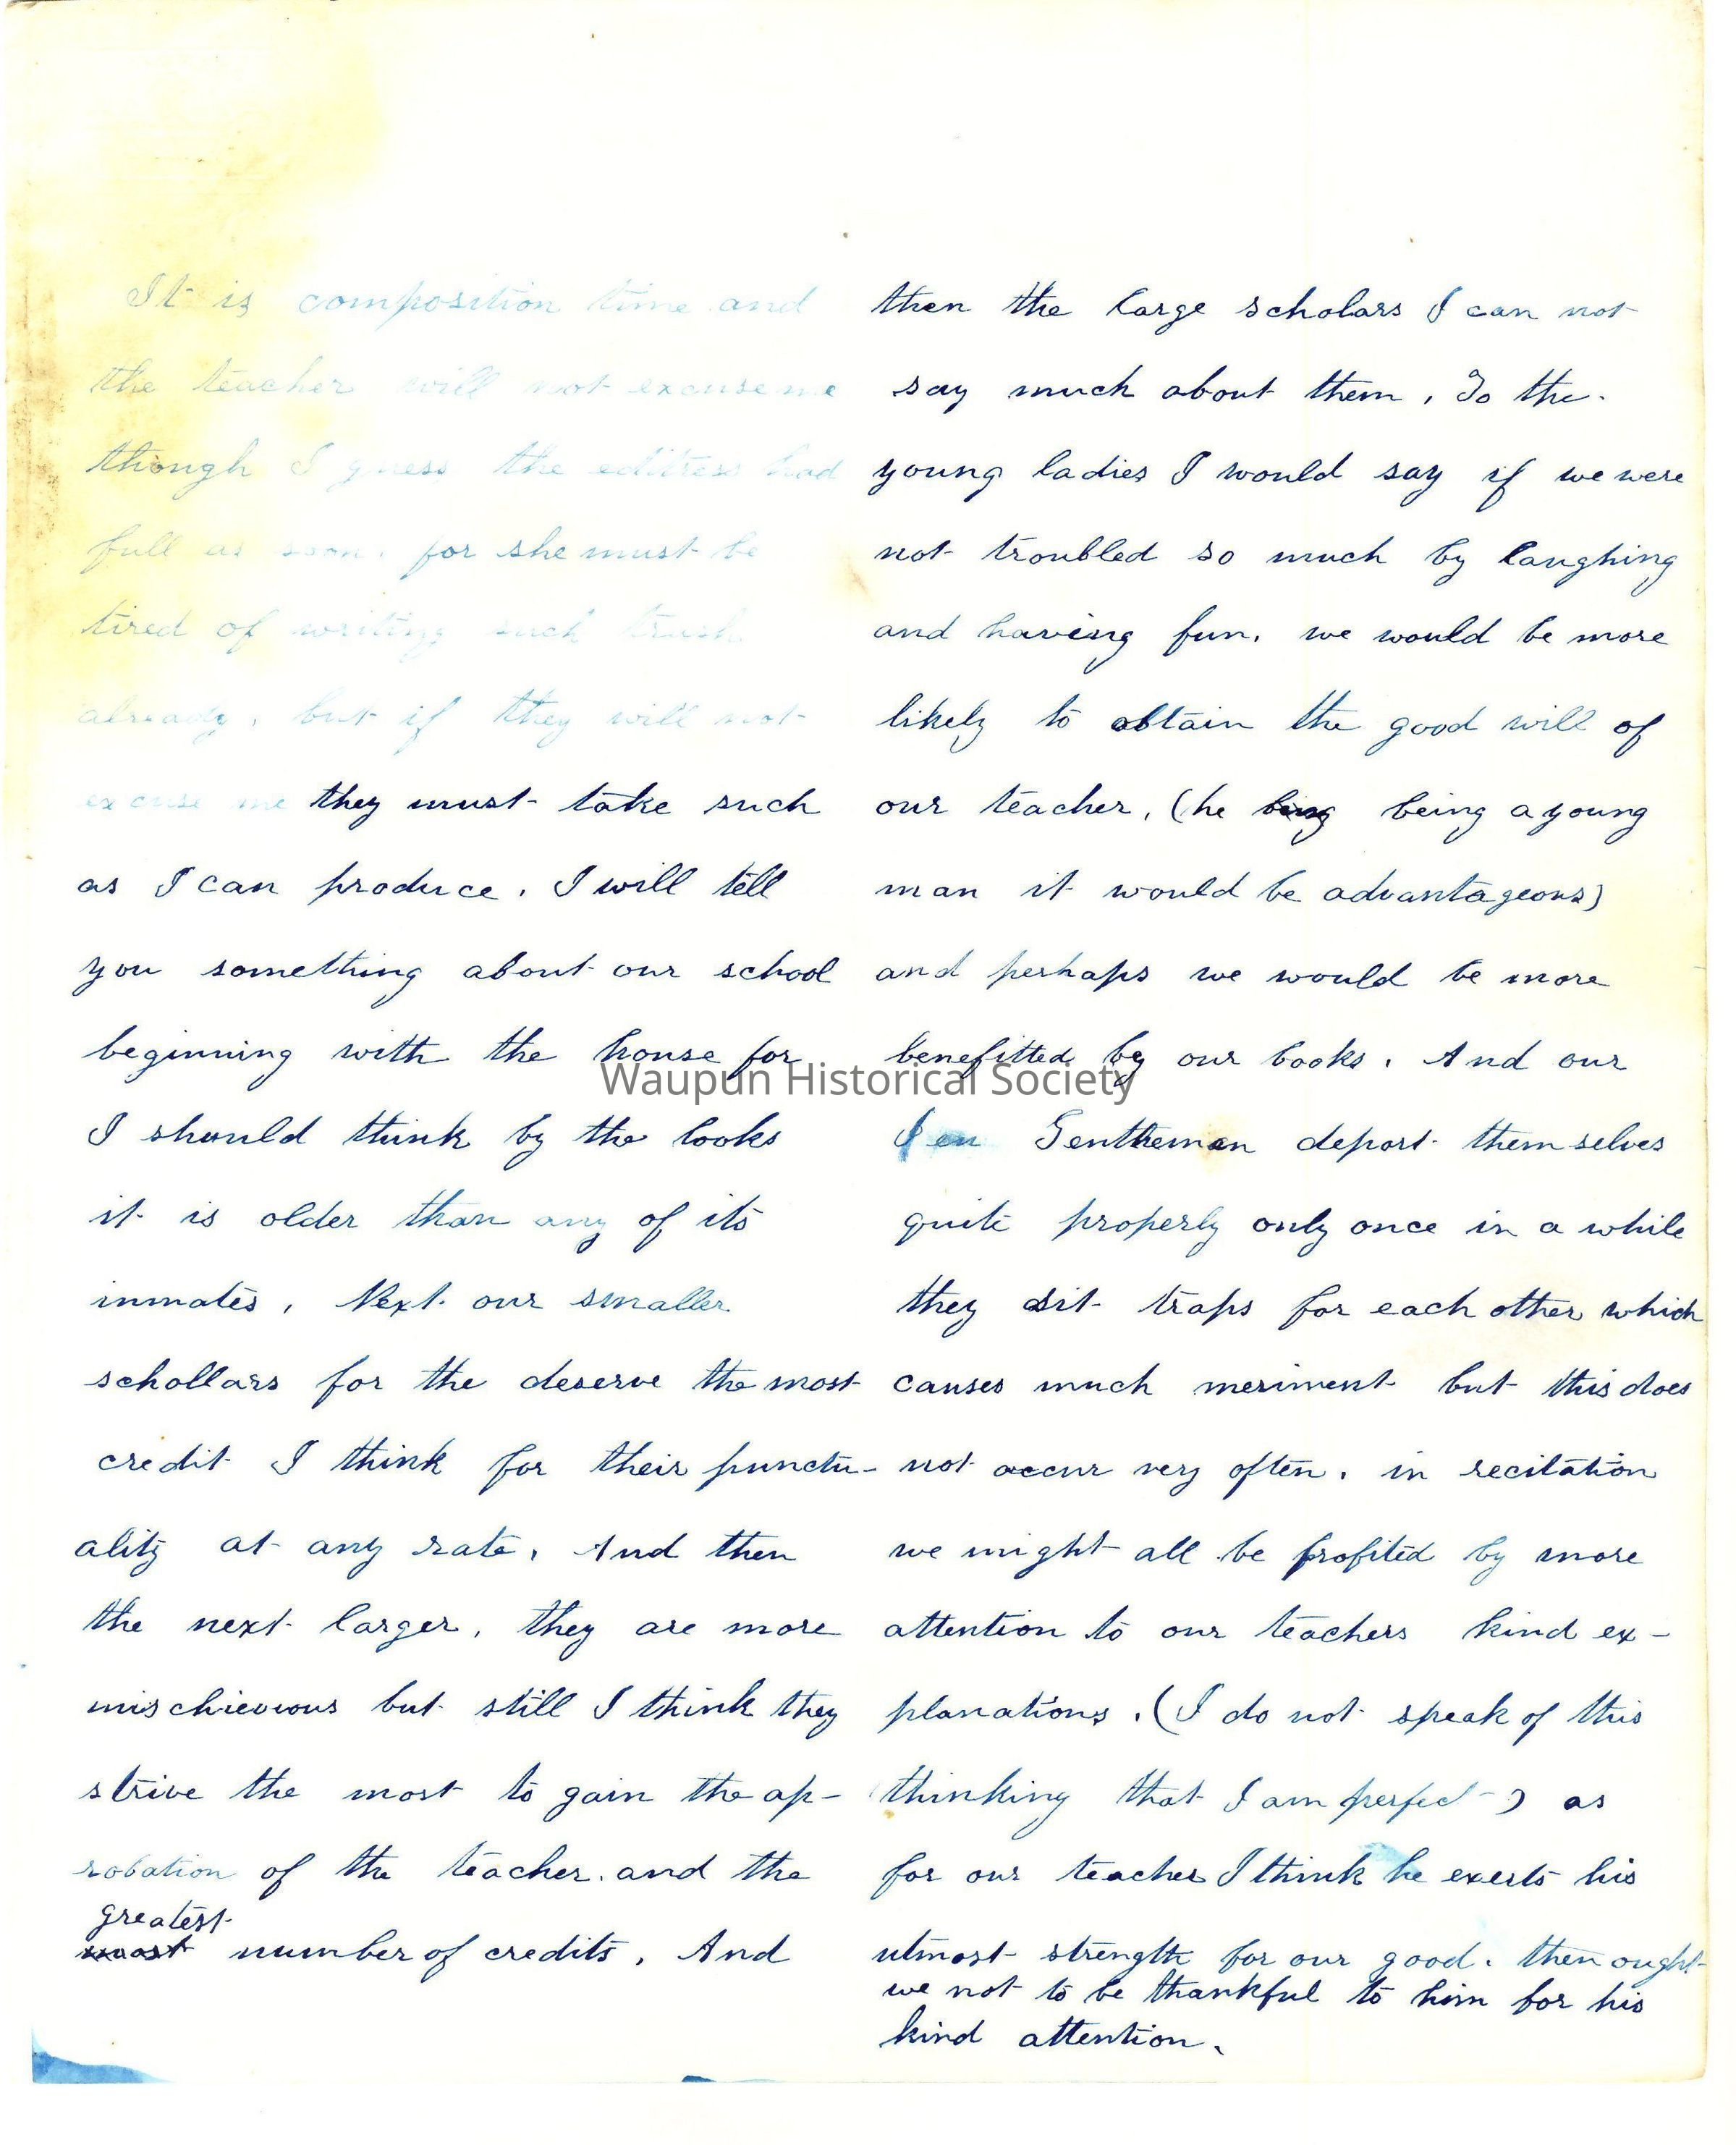 It is composition time and
the teacher will not excuse me
though I guess the editress had
full as soon, for she must be
tired of writing such trash
already, but if they will not
excuse me they must take such
as I can produce. I will tell
you something about our school
beginning with the house for
I should think by the looks
it is older than any of its
inmates, Next our smaller
schollars for the deserve the most
credit I think for their punctu-
ality at any rate, And then
the next larger, they are more
mischievious but still I think they
strive the most to gain the ap-
robation of the teacher. and the
greatest
most number of credits, And
then the large scholars I can not
say much about them, To the
young ladies I would say if we were
not troubled so much by laughing
and having fun, we would be more
likely to obtain the good will of
our teacher, (he being being a young
man it would be advantageous)
and perhaps we would be more
benefitted by our books. And our
Gentlemen deport themselves
quite properly only once in a while
they sit traps for each other which
causes much meriment but this does
not occur very often, in recitation
we might all be profited by more
attention to our teachers kind ex-
planations. (I do not speak of this
thinking that I am perfect) as
for our teacher I think he exerts his
utmost strength for our good. then ought
we not to be thankful to him for his
kind attention.
Waupun Historical Society